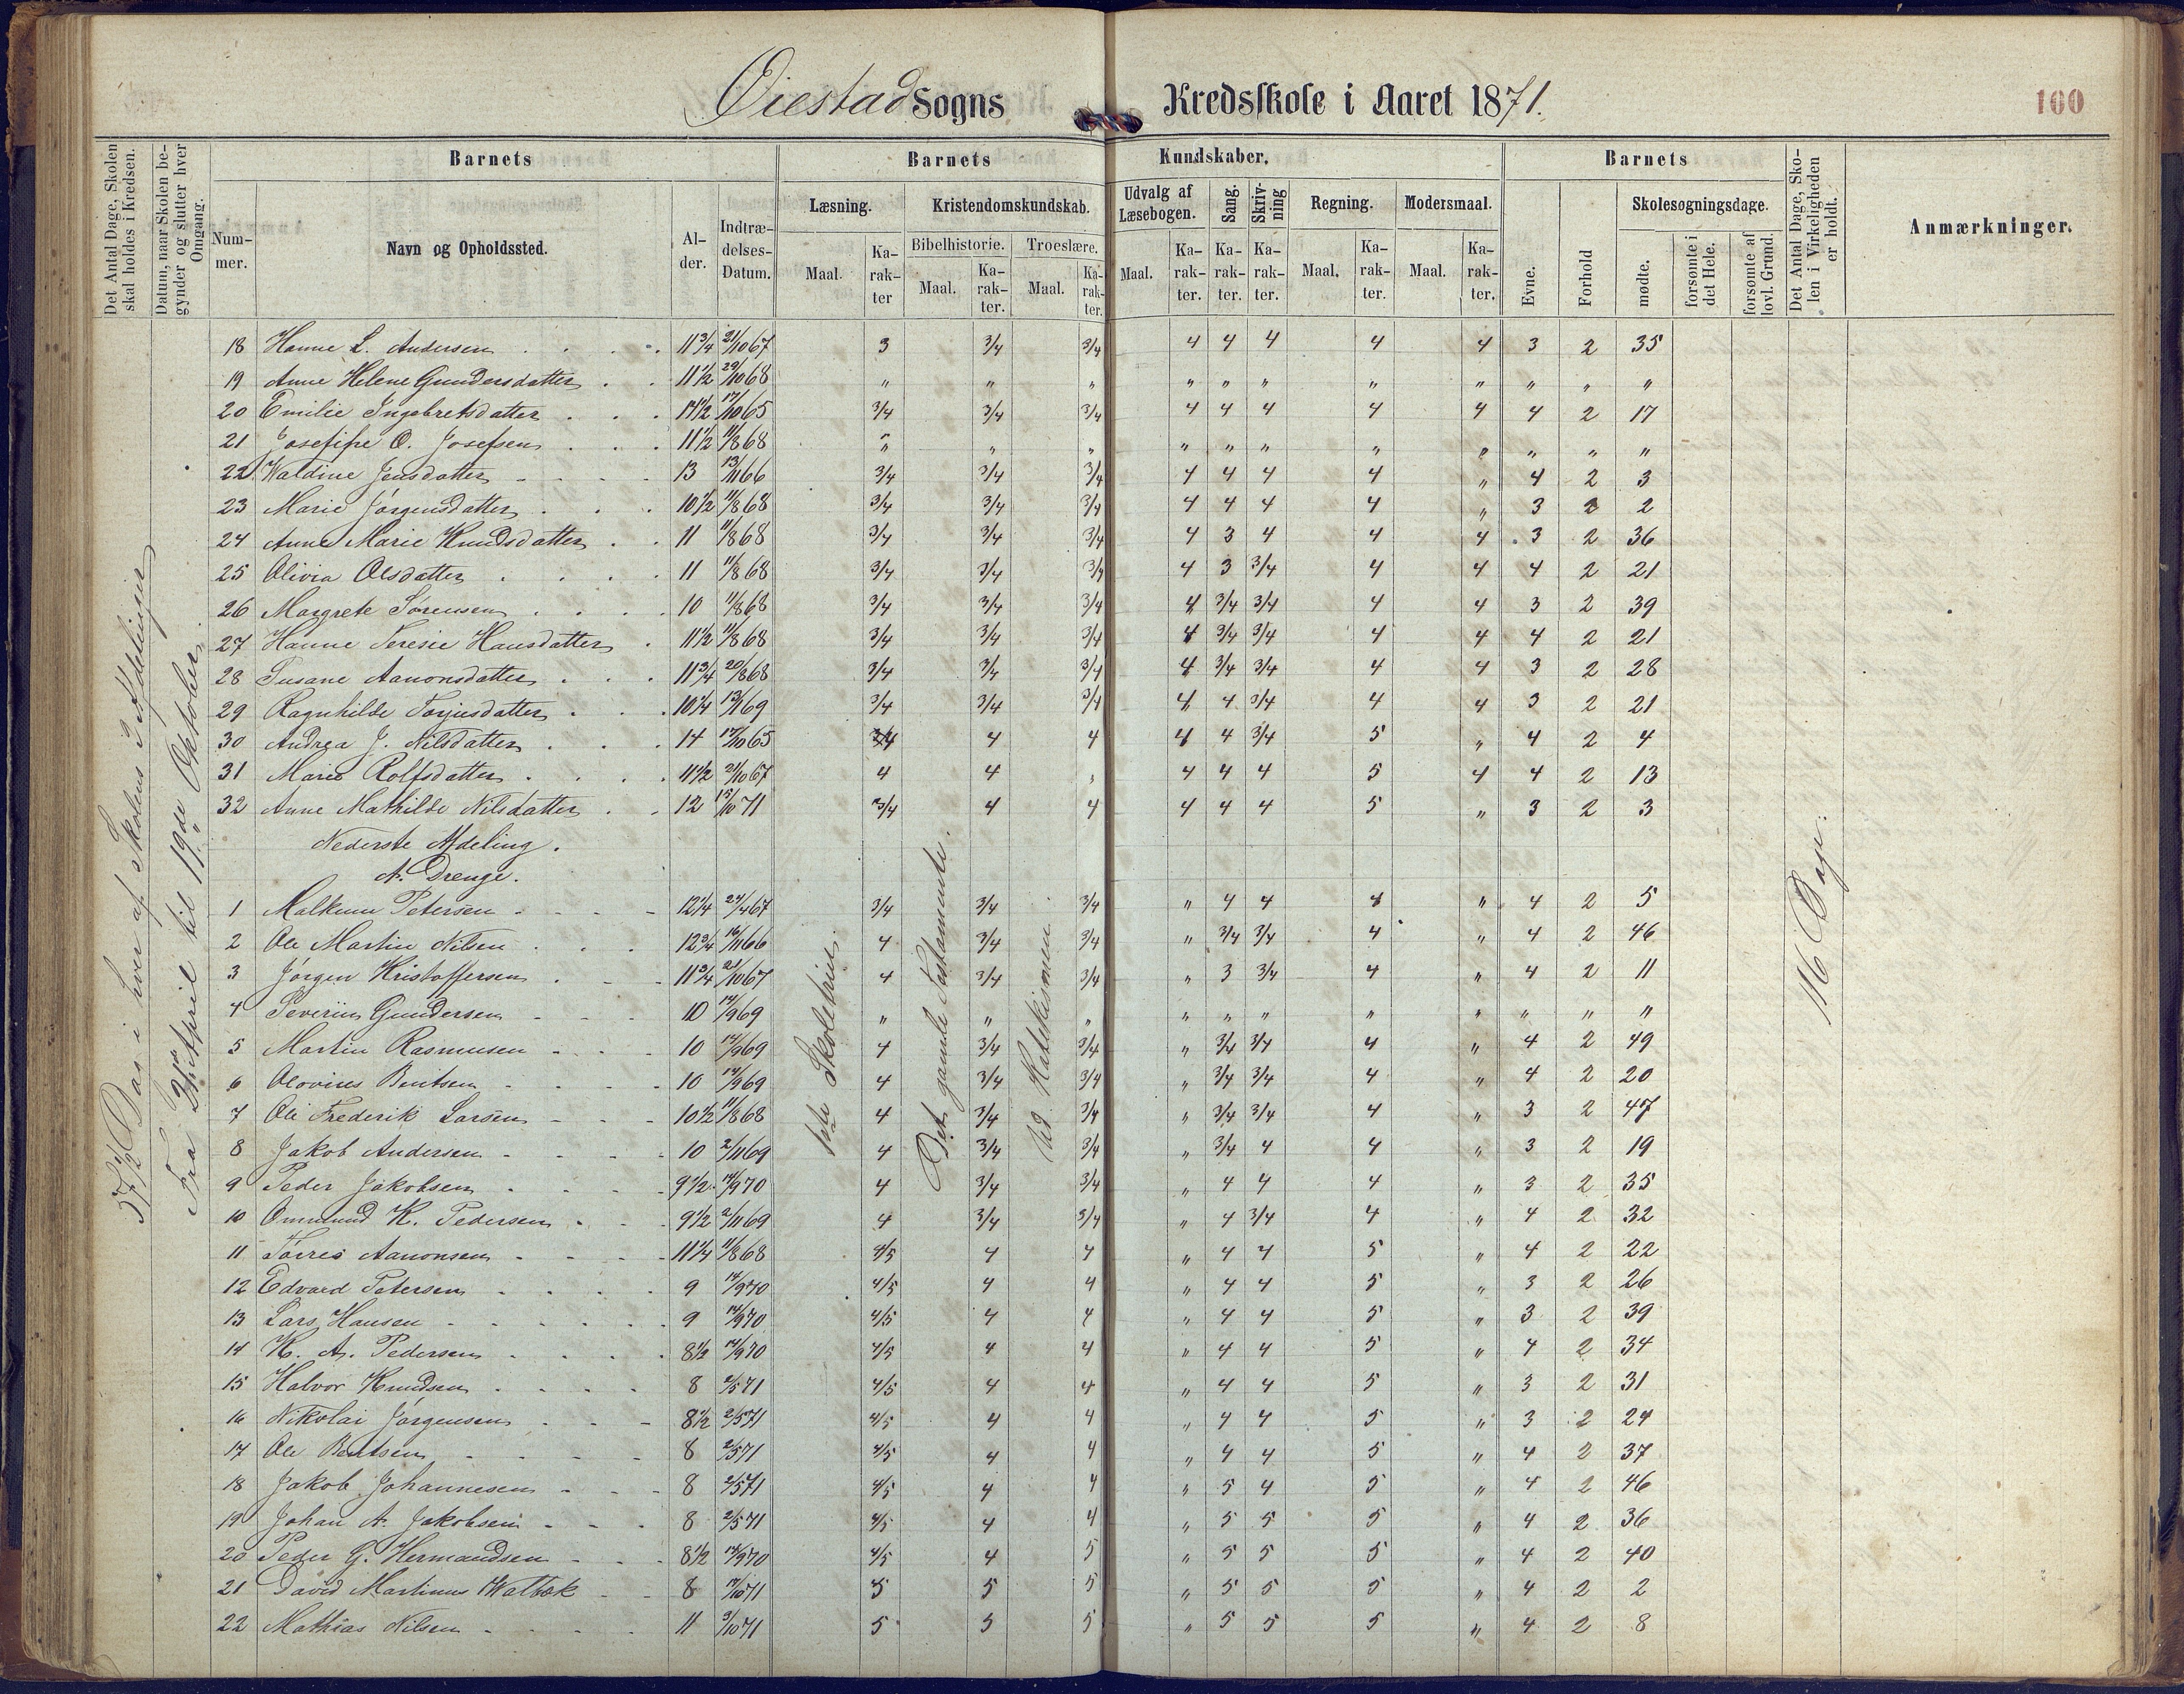 Øiestad Sogns Kredsskole i Aaret 1871.
100
Det Antal Dage, Skolen skal holdes i Kredsen.
Datum, naar Skolen begynder og slutter hver Omgang.
Barnets
Barnets Kundskaber.
Barnets
Det Antal Dage, Skolen i Virkeligheden er holdt.
Anmærkninger.
Nummer.
Navn og Opholdssted.
Alder.
Indtrædelses-Datum.
Læsning.
Kristendomskundskab.
Udvalg af Læsebogen.
Sang.
Skrivning
Regning.
Modersmaal.
Evne.
Forhold
Skolesøgningsdage.
Bibelhistorie.
Troeslære.
Maal.
Karakter
Maal.
Karakter.
Maal.
Karakter.
Maal.
Karakter.
Karakter.
Karakter.
Maal.
Karakter.
Maal.
Karakter.
mødte.
forsømte i det Hele.
forsømte af lovl. Grund.
57 1/2 Dag i hver af Skolens 2 Afdelinger
Fra 24de April til 19de Oktober.
18 Hanne L. Andersen 11 3/4 21/10 67 3 3/4 3/4 4 4 4 4 4 3 2 35
19 Anne Helene Gundersdatter 11 1/2 29/10 68 " " " " " " " " " " "
20 Emilie Ingebretsdatter 14 1/2 17/10 65 3/4 3/4 3/4 4 4 4 4 4 4 2 17
21 Josefine O. Josefsen 11 1/2 11/8 68 " " " " " " " " " " "
22 Valdine Jensdatter 13 13/11 66 3/4 3/4 3/4 4 4 4 4 " 4 2 3
23 Marie Jörgensdatter 10 1/2 11/8 68 3/4 3/4 3/4 4 4 4 4 " 3 2 2
24 Anne Marie Knudsdatter 11 11/8 68 3/4 3/4 3/4 4 3 4 4 4 3 2 36
25 Olivia Olsdatter 11 11/8 68 3/4 3/4 3/4 4 3 3/4 4 4 4 2 21
26 Margrete Sørensen 10 11/8 68 3/4 3/4 3/4 4 3/4 3/4 4 4 3 2 39
27 Hanne Teresie Hansdatter 11 1/2 11/8 68 3/4 3/4 3/4 4 3/4 3/4 4 4 4 2 21
28 Susane Aanonsdatter 11 3/4 20/8 68 3/4 3/4 3/4 4 3/4 3/4 4 4 3 2 28
29 Ragnhilde Torjusdatter 10 1/4 13/1 69 3/4 3/4 3/4 4 4 3/4 4 4 3 2 21
30 Andrea J. Nilsdatter 14 17/10 65 3/4 4 4 4 4 3/4 5 " 4 2 4
31 Marie Rolfsdatter 11 1/2 21/10 67 4 4 " 4 4 4 5 4 4 2 13
32 Anne Mathilde Nilsdatter 12 15/10 71 3/4 4 4 4 4 4 5 " 3 2 3
Nederste Afdeling.
A. Drenge.
1ste Skoletrin.
Det gamle Testamente.
Ud Katekismen.
116 Dage.
1 Malkum Petersen 12 1/4 24/4 67 3/4 3/4 3/4 " 4 4 4 " 4 2 5
2 Ole Martin Nilsen 12 3/4 16/11 66 4 3/4 3/4 " 3/4 3/4 4 " 4 2 46
3 Jörgen Kristoffersen 11 3/4 21/10 67 4 3/4 3/4 " 3 3/4 4 " 4 2 11
4 Severin Gundersen 10 14/9 69 " " " " " " " " " " "
5 Martin Rasmusen 10 14/9 69 4 3/4 3/4 " 3/4 3/4 4 " 4 2 49
6 Olovius Bentsen 10 14/9 69 4 3/4 3/4 " 3/4 3/4 4 " 4 2 20
7 Ole Frederik Larsen 10 1/2 11/8 68 4 3/4 3/4 " 3/4 3/4 4 " 3 2 47
8 Jakob Andersen 10 2/11 69 4 3/4 3/4 " 3/4 4 4 " 3 2 19
9 Peder Jakobsen 9 1/2 14/9 70 4 3/4 3/4 " 4 4 4 " 3 2 35
10 Ommund K. Pedersen 9 1/2 2/11 69 4 3/4 3/4 " 4 3/4 4 " 4 2 32
11 Torres Aanonsen 11 1/4 11/8 68 4/5 4 4 " 4 4 5 " 4 2 22
12 Edvard Petersen 9 14/9 70 4/5 4 4 " 4 4 5 " 3 2 26
13 Lars Hansen 9 14/9 70 4/5 4 4 " 4 4 5 " 3 2 39
14 K. A. Pedersen 8 1/2 14/9 70 4/5 4 4 " 4 4 5 " 4 2 34
15 Halvor Knudsen 8 2/5 71 4/5 4 4 " 4 4 5 " 3 2 31
16 Nikolai Jörgensen 8 1/2 2/5 71 4/5 4 4 " 4 4 5 " 3 2 24
17 Ole Bentsen 8 2/5 71 4/5 4 4 " 4 4 5 " 4 2 37
18 Jakob Johannesen 8 2/5 71 4/5 4 4 " 5 4 5 " 4 2 46
19 Johan A. Jakobsen 8 2/5 71 4/5 4 4 " 5 5 5 " 4 2 36
20 Peder G. Hermandsen 8 1/2 14/9 70 4/5 4 5 " 5 5 5 " 4 2 40
21 David Martinus Walbek 8 17/10 71 5 5 5 " 5 5 5 " 4 2 2
22 Mathias Nilsen 11 3/10 71 5 5 5 " 5 5 5 " 4 2 8